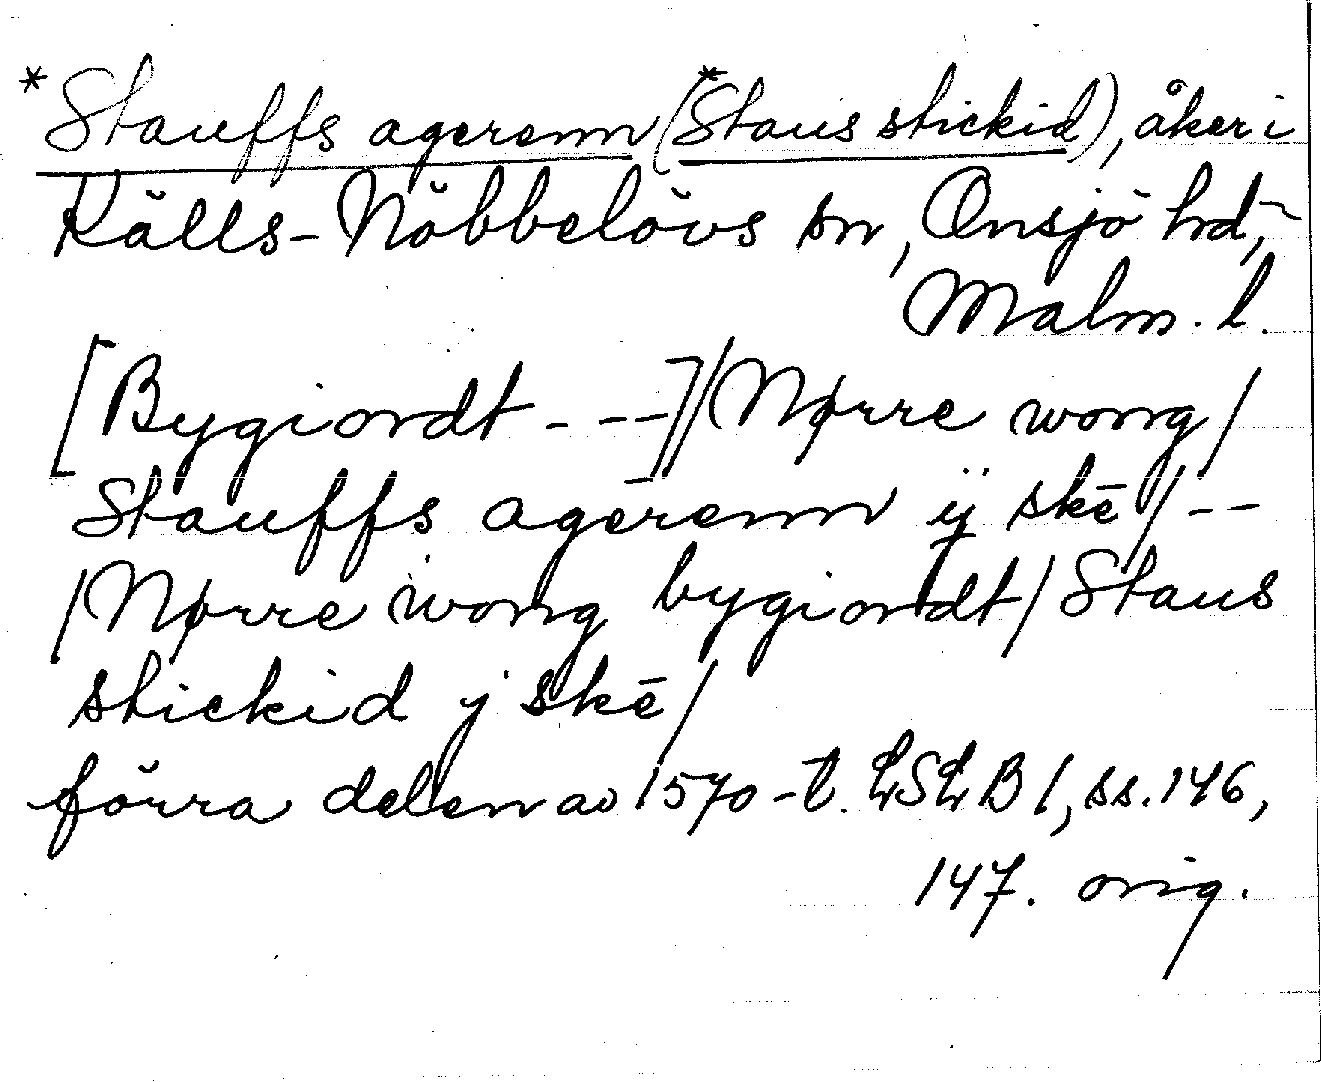 *Stauffs agerenn (*Staus stickid), åker i
Källs-Nöbbelövs sn, Onsjö hd,
Malm. l.
[Bygiordt - - -]/ /Nørre wong/
Stauffs agerenn ij skē/ - -
/Nørre wong bygiordt/ Staus
stickid j skē/
förra delen av 1570-t. LSLB 1, ss. 146,
147. orig.